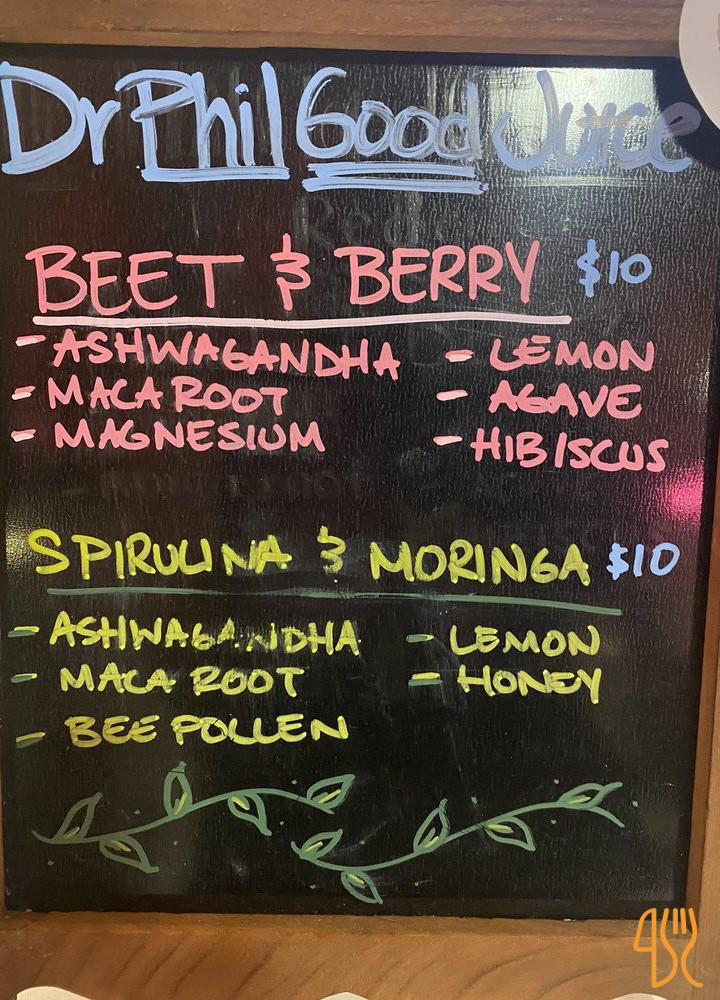 Dr Phil Good Juice
BEET & BERRY $10
- ASHWAGANDHA - LEMON
- MACA ROOT - AGAVE
- MAGNESIUM - HIBISCUS
SPIRULINA & MORINGA $10
- ASHWAGANDHA - LEMON
- MACA ROOT - HONEY
- BEE POLLEN